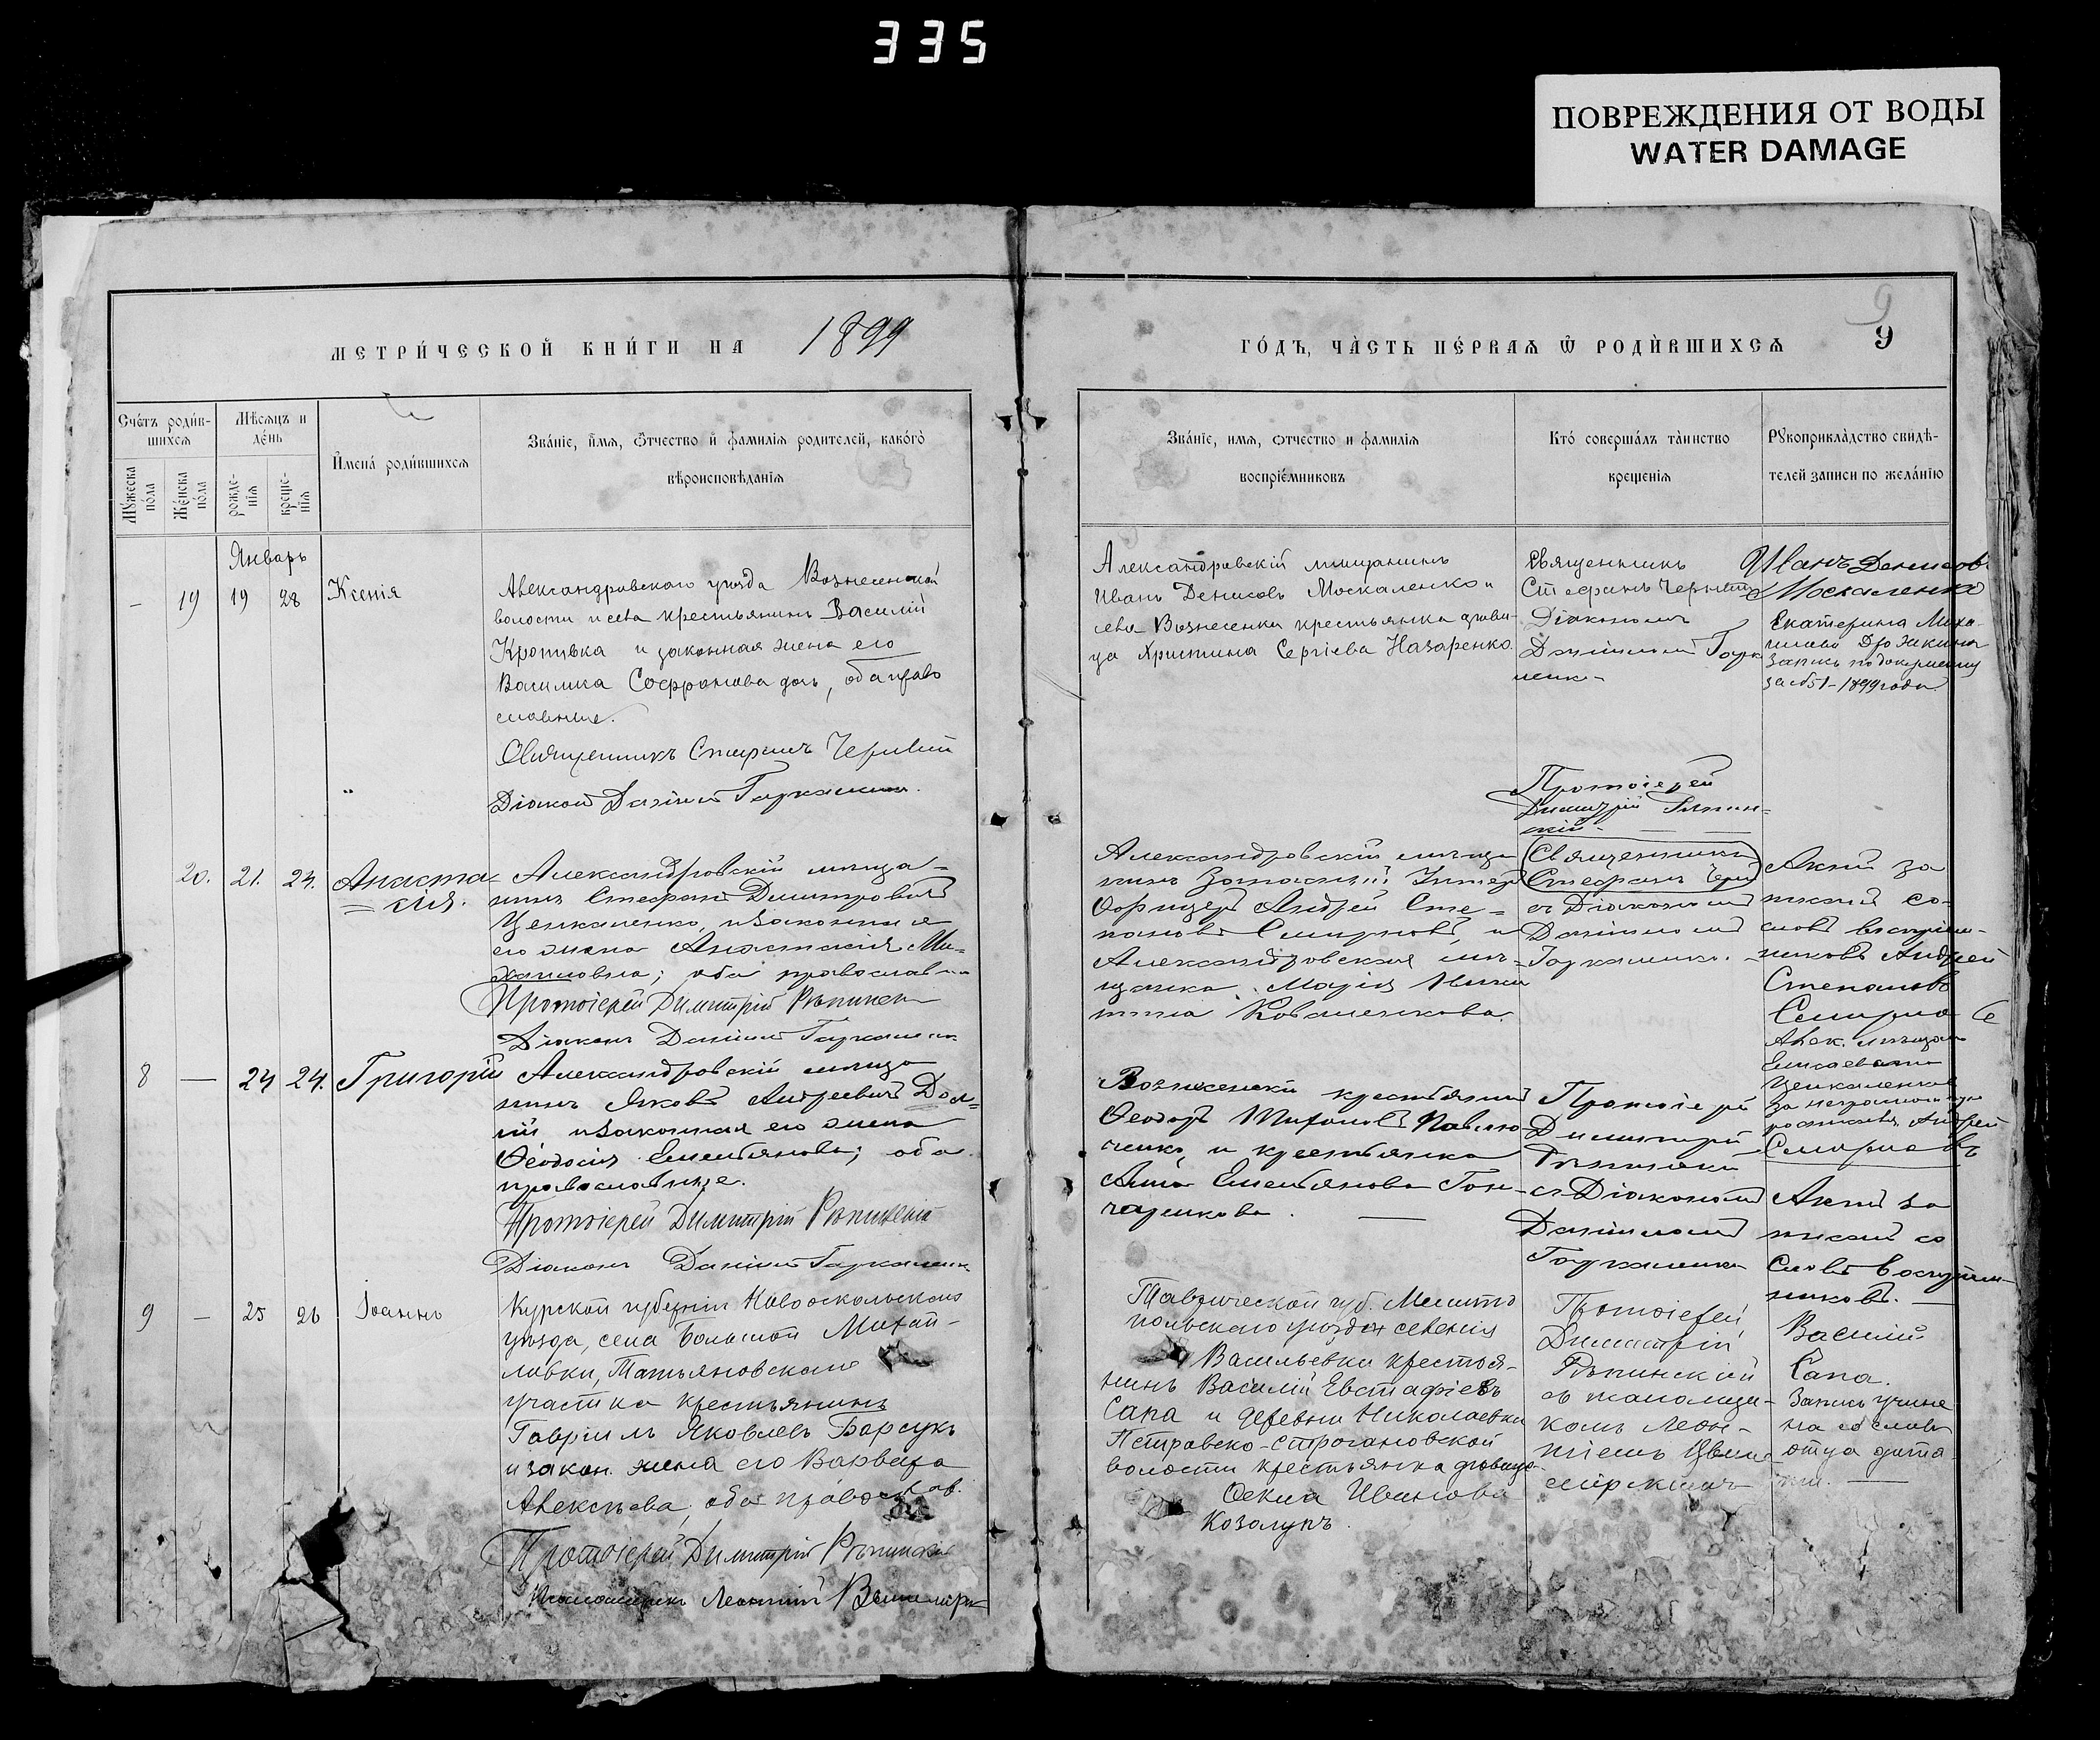 335
ПОВРЕЖДЕНИЯ ОТ ВОДЫ
WATER DAMAGE
МЕТРИ́ЧЕСКОЙ КНИ́ГИ НА 1899
ГО́ДЪ, ЧА̀СТЬ ПЕ́РВАЯ Ѿ РОДЍВШИХСЯ
9
9
Сче́тъ роди́в-
шихся
Мѣ́сяцъ и
де́нь
Мꙋ́жеска
по́ла
Же́нска
по́ла
рожде-
нія
креще-
нія
И҆мена́ роди́вшихся
Зва́ніе, и҆́мя, ѻ҆́тчество и҆ фамилія родителей, како́гѡ
вѣроисповѣ́данія
Зва́ніе, имя, ѻтчество и фамилія
воспріе́мниковъ
Кто́ соверша́лъ та̀инство
крещенія
Рꙋкоприкла̀дство свидѣ-
телей записи по жела́нію
Январь
– 19 19 28 Ксенія
Александровскаго уѣзда Вознесенской
волости и села крестьянинъ Василій
Кропивка и законная жена его
Василиса Софронова дочь, оба право
славные.
Священникъ Стефанъ
Діаконъ Даніилъ
Александровскій мѣщанинъ
Иванъ Денисовъ Москаленко и
села Вознесенки крестьянка дѣви-
ца Христина Сергіева Назаренко
Священникъ
Стефанъ
Діакономъ
Даніиломъ
Иванъ Денисовъ
Москаленко
Екатерина Миха-
Запись
1899 года
Протоіерей
Димитрій Рѣпин-
скій
20. 21. 24. Анаста
сія.
Александровскій мѣща-
нинъ Стефанъ Димитровичъ
Цепкаленко, и законная
его жена Анастасія Ми-
хаиловна; оба православн
Протоіерей Димитрій Рѣпинскій
Діаконъ Даніилъ
Александровскій мѣща
нинъ Запасный Унтеръ
Офицеръ Андрей Сте-
пановъ Смирновъ, и
Александровская мѣ-
щанка Марія
Коваленкова.
Священникъ
Стефанъ
съ Діакономъ
Даніиломъ
Актъ за
писанъ со
словъ воспріем-
никовъ Андрей
Степановъ
Смирновъ
Алек. мѣщан
Андрей
Смирновъ
8 — 24 24. Григорій
Александровскій мѣща
нинъ Яковъ Андреевичъ Дол-
гій и законная его жена
Ѳеодосія Емельянова; оба
православные.
Протоіерей Димитрій Рѣпинскій
Діаконъ Даніилъ
Вознесенскій крестьянинъ
Ѳеодоръ Тихоновъ Павлю
ченко, и крестьянка
Анна Емельянова Гон-
чаренкова. —
Протоіерей
Димитрій
Рѣпинскій
съ Діакономъ
Даніиломъ
Актъ за
писанъ со
словъ воспріем-
никовъ. —
9 – 25 26 Іоаннъ
Курской губерніи Новооскольскаго
уѣзда, села Большой Михай-
ловки, Татьяновскаго
участка крестьянинъ
Гавріилъ Яковлевъ Барсукъ
и закон. жена его Варвара
Алексѣева, оба православ.
Протоіерей Димитрій Рѣпинскій
Псаломщикъ Леонтій
Таврической губ. Мелито
польскаго уѣзда селенія
Васильевки крестья-
нинъ Василій Евстафіевъ
Сапа и деревни Николаевки
Петровско-Строгановской
волости крестьянка дѣвица
Ѳекла Иванова
Козолупъ.
Протоіерей
Димитрій
Рѣпинскій
съ псаломщи-
комъ Леон-
тіемъ
Василій
Сапа.
Запись учине
на со словъ
отца дитя
ти. —